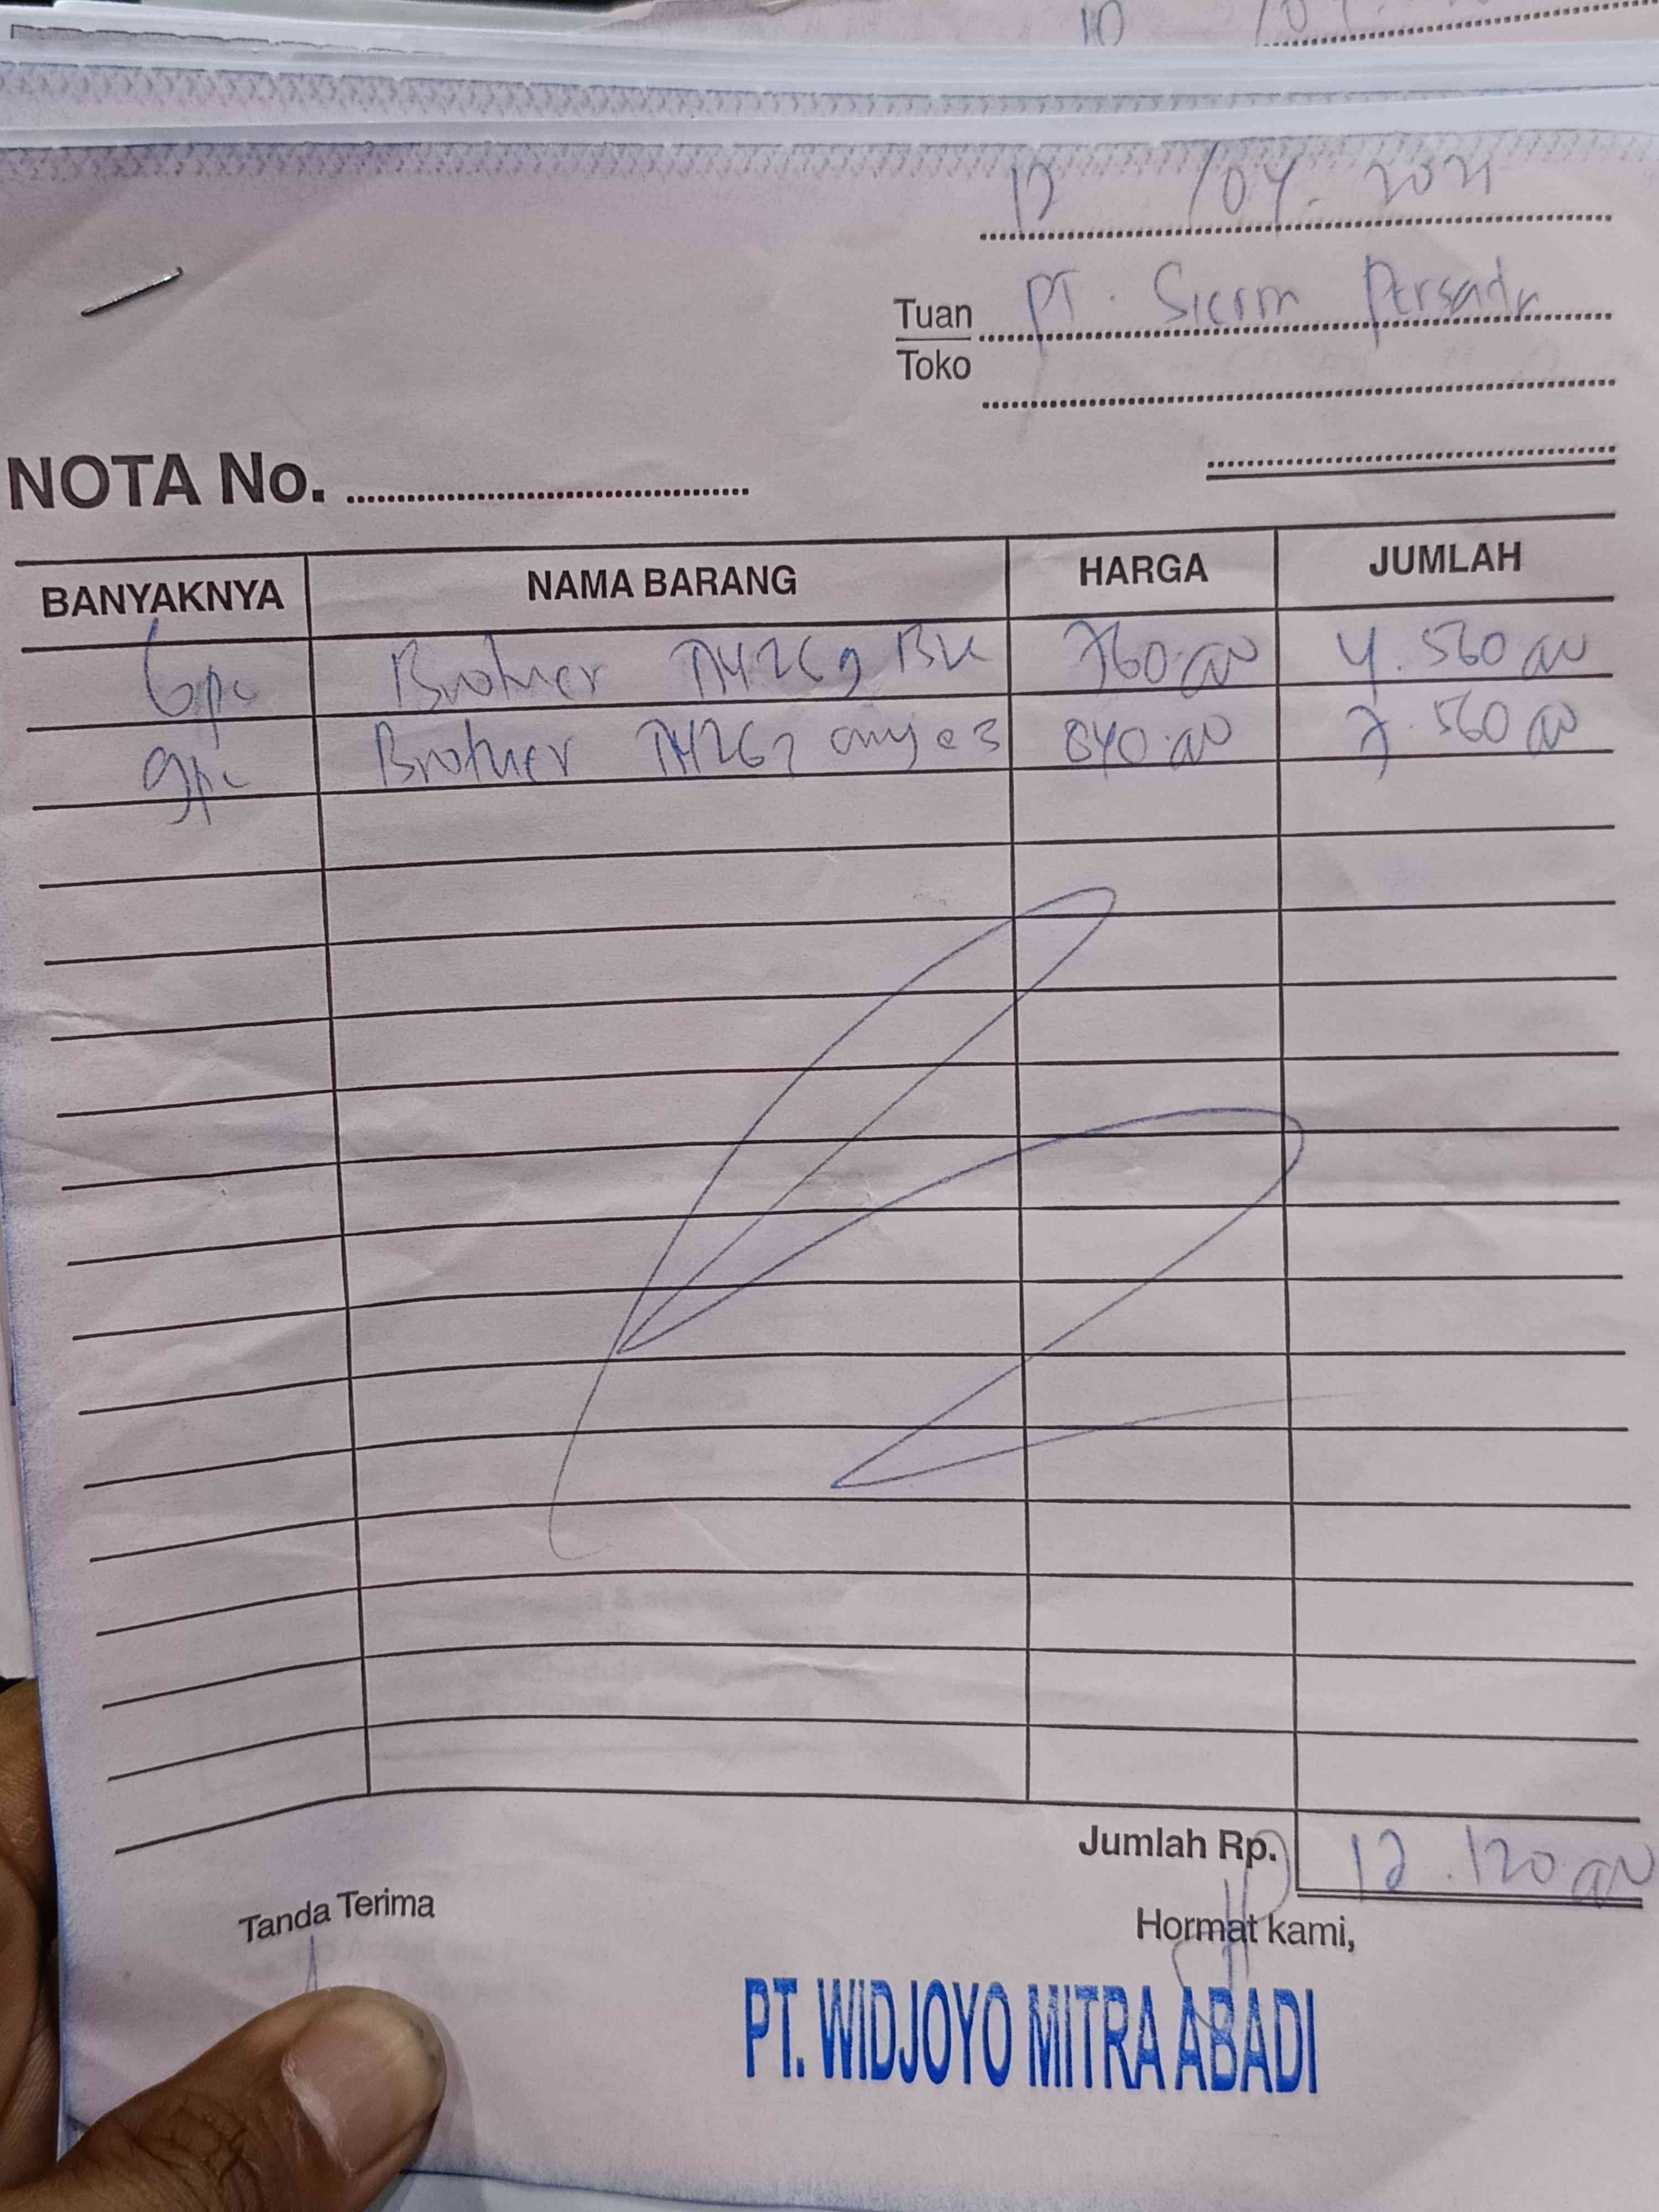 /04. 2021
Tuan PT. Sicom Persada
Toko
NOTA No.
BANYAKNYA NAMA BARANG HARGA JUMLAH
6pc Brother BK 760.00 4.560.00
9pc Brother 840.00 7.560.00
Jumlah Rp. 12.120.00
Tanda Terima Hormat kami,
PT. WIDJOYO MITRA ABADI